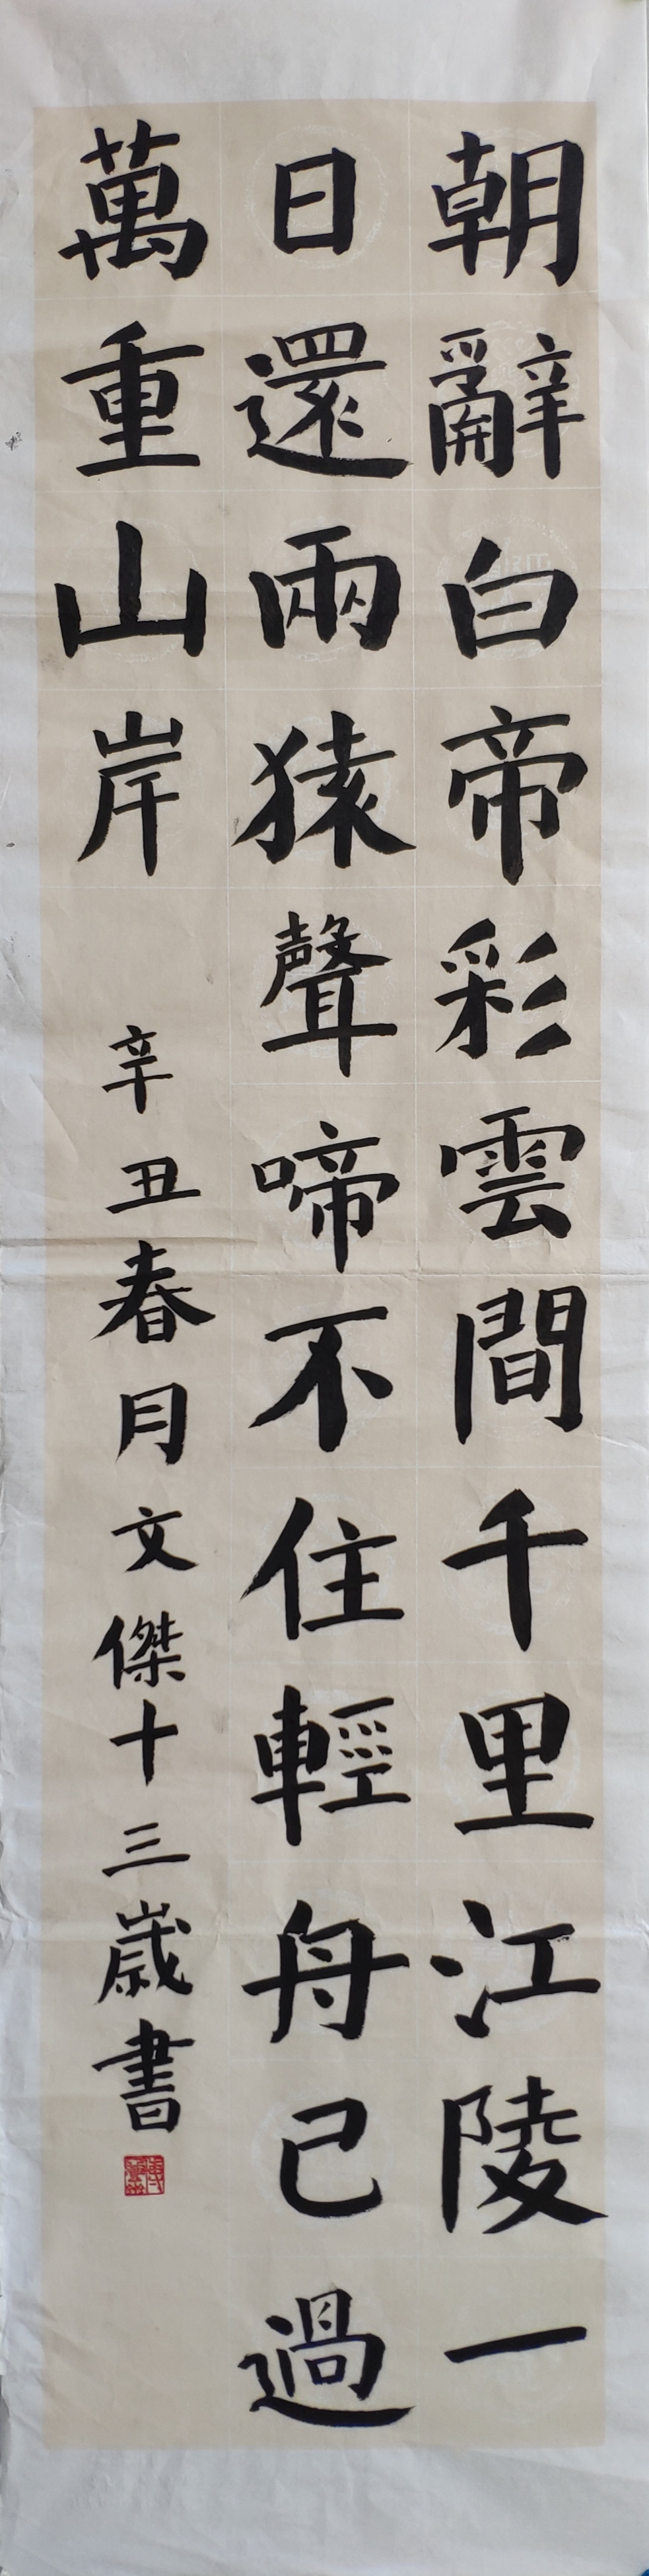 朝辭白帝彩雲間千里江陵一
日還兩猿聲啼不住輕舟已過
萬重山岸
辛丑春月文傑十三歲書